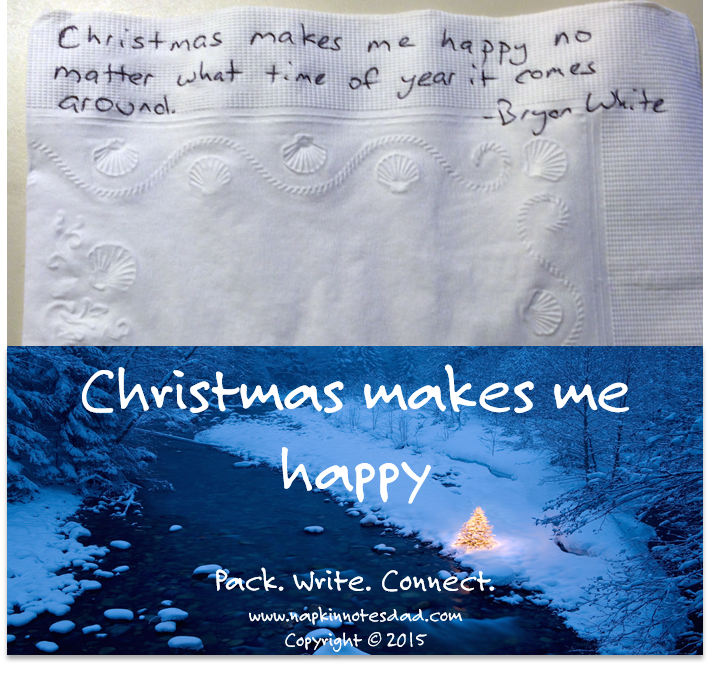 Christmas makes me happy no
matter what time of year it comes
around.
-Bryan White
Christmas makes me
happy
Pack. Write. Connect.
www.napkinnotesdad.com
Copyright © 2015